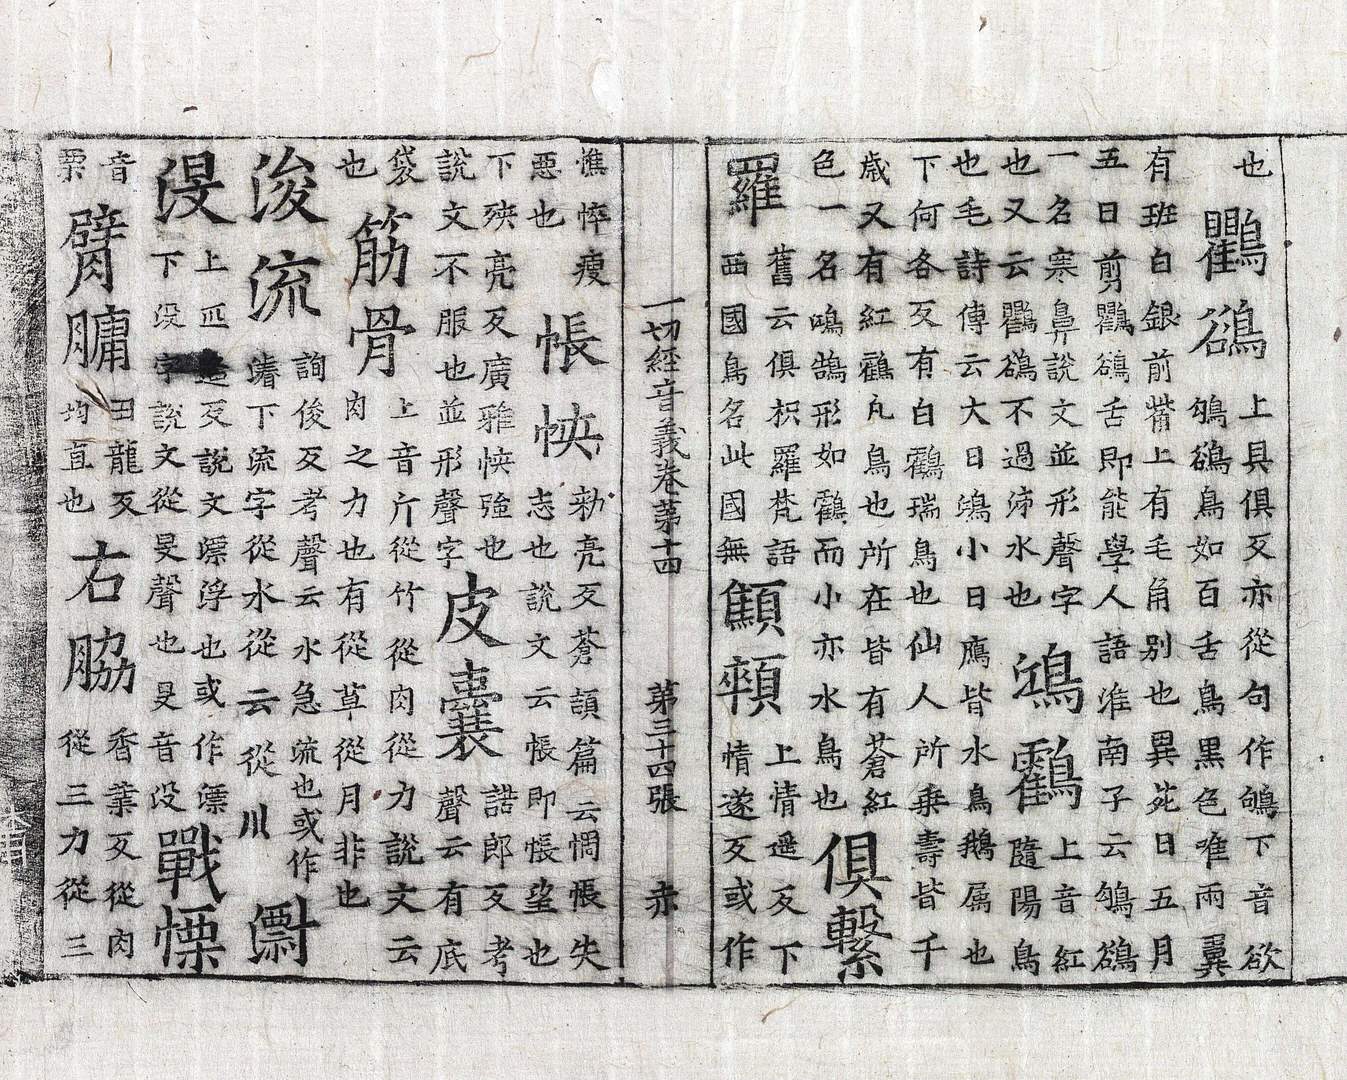 也鸜鵒上具俱反亦從句作鴝下音欲
鴝鵒鳥如百舌鳥黑色唯兩翼
有班白銀前觜上有毛角别也異苑曰五月
五日剪鸜鵒舌即能學人語淮南子云鴝鵒
一名寒鼻說文並形聲字
也又云鸜鵒不過泲水也鴻鸖上音紅
隨陽鳥
也毛詩傳云大曰鴻小曰鴈皆水鳥鵝属也
下何各反有白鸖瑞鳥也仙人所乗壽皆千
歳又有紅鸖凣鳥也所在皆有蒼紅
色一名鳴鵠形如鸖而小亦水鳥也俱繫
羅舊云俱枳羅梵語
西國鳥名此國無顦顇上情遥反下
情遂反或作
一切經音義卷第十四 第三十四張 赤
憔悴瘦
惡也悵怏勑亮反蒼頡篇云惆悵失
志也說文云悵即悵望也
下殃亮反廣雅怏強也
說文不服也並形聲字皮囊諾郎反考
聲云有底
袋
也筋骨上音斤從竹從肉從力說文云
肉之力也有從草從月非也
浚流詢俊反考聲云水急流也或作
濬下流字從水從云從川
没上匹遥反說文漂浮也或作漂
下没字說文從𠬛聲也𠬛音没戰慄
音
栗臂𦟛丑龍反
均直也右脇香葉反從肉
從三力從三